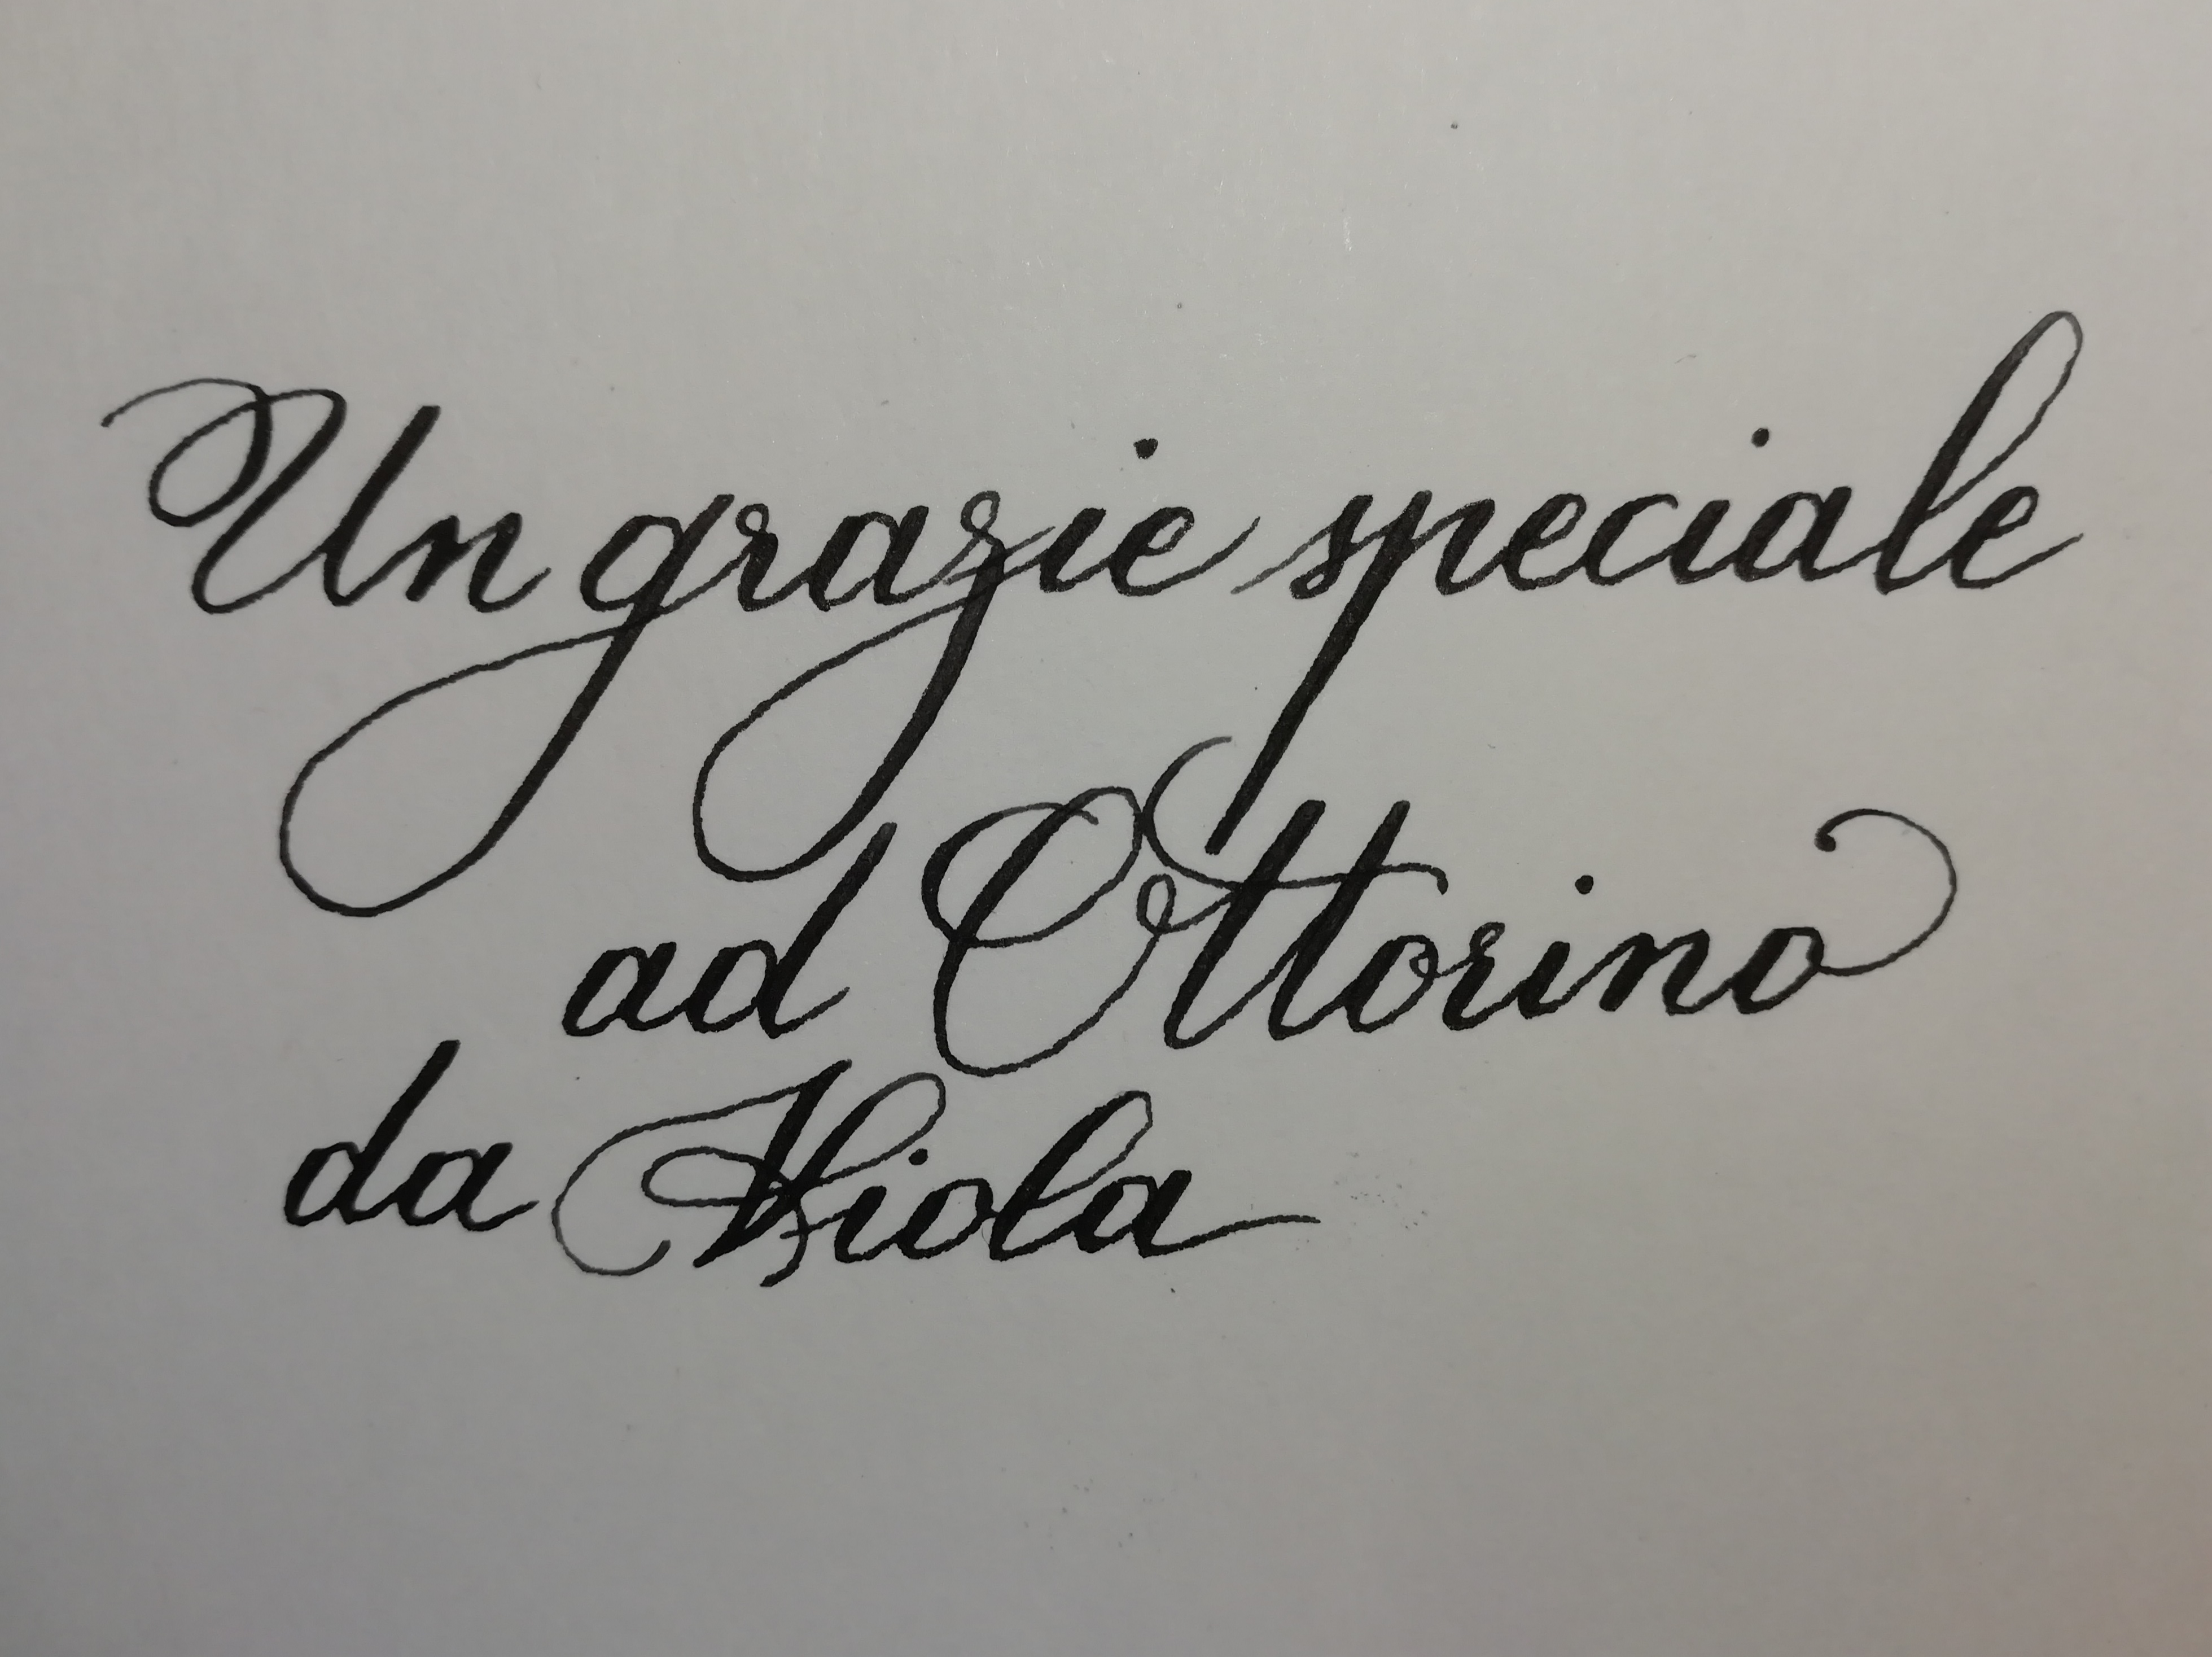 Un grazie speciale
ad Ottorino
da Viola